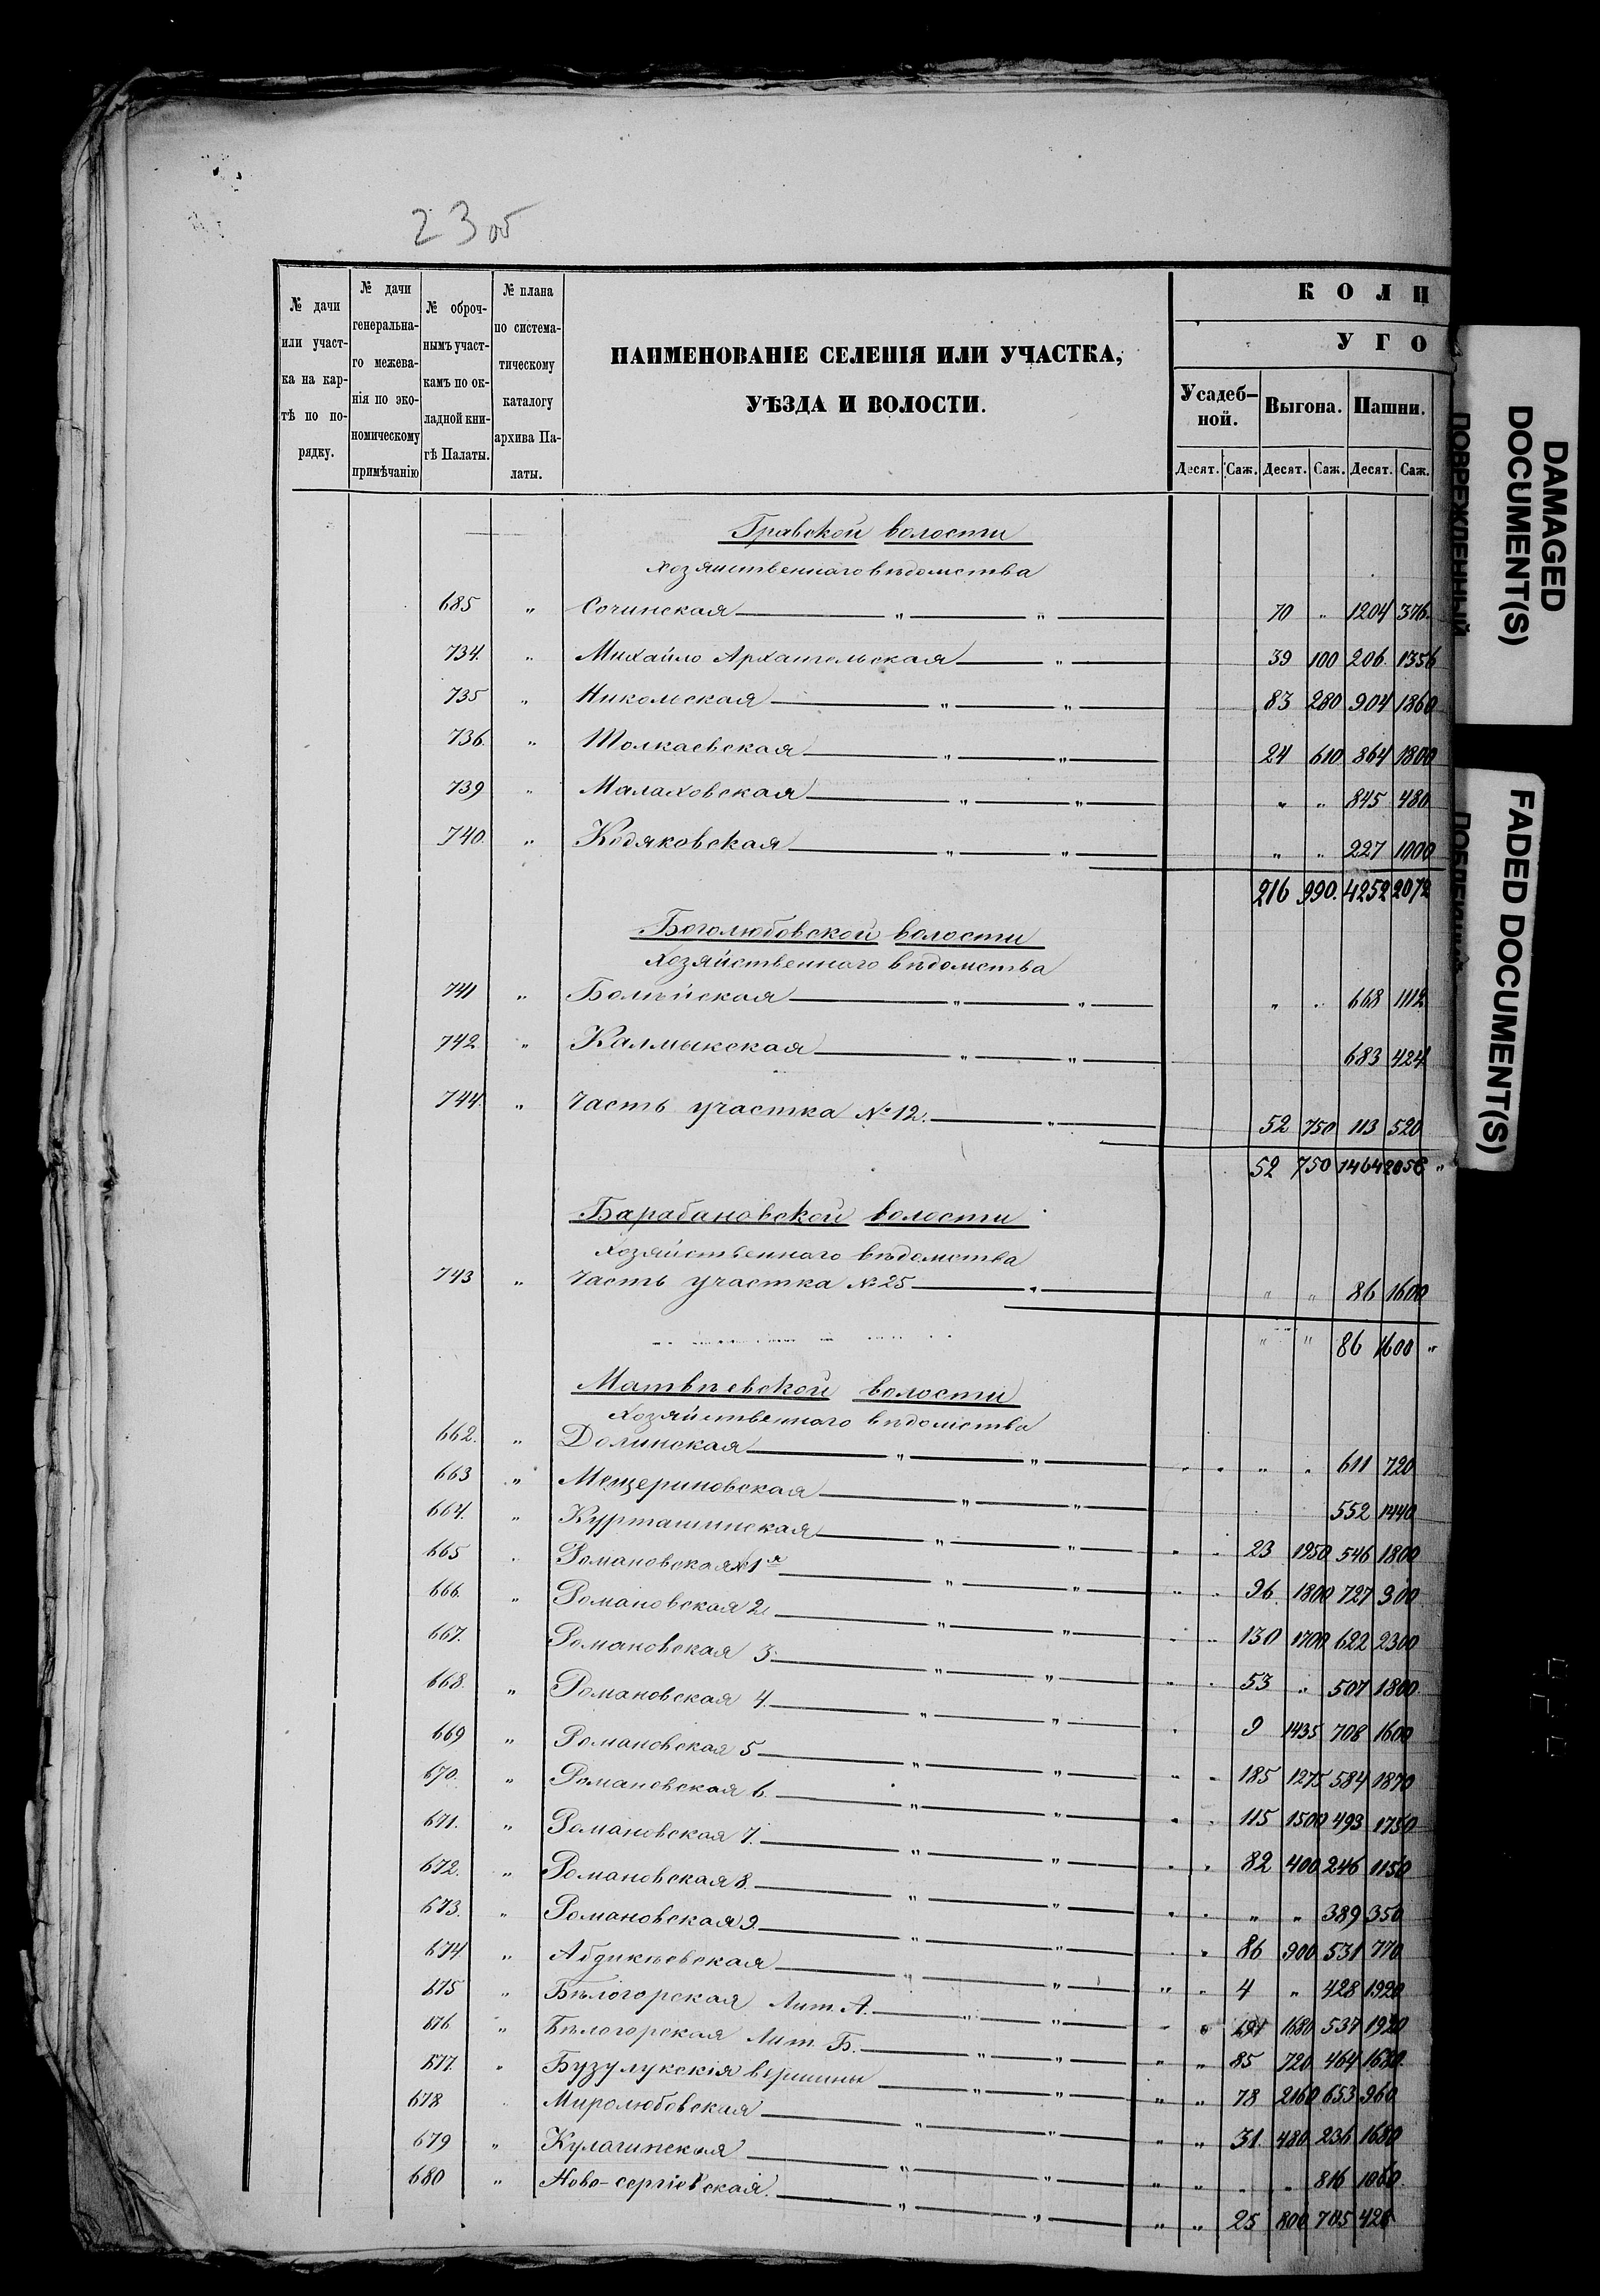 23 об
№ дачи или участка на картѣ по порядку.
№ дачи генеральнаго межеванія по экономическому примѣчанію
№ оброчнымъ участкамъ по окладной книгѣ Палаты.
№ плана по систематическому каталогу архива Палаты.
НАИМЕНОВАНІЕ СЕЛЕНІЯ ИЛИ УЧАСТКА,
УѢЗДА И ВОЛОСТИ.
КОЛИ
УГО
Усадебной. Выгона. Пашни.
Десят. Саж. Десят. Саж. Десят. Саж.
волости
Хозяйственнаго вѣдомства
685 „ Сочинская „ „ 70 „ 1204 376.
734. „ Михайло Архангельская „ 39 100 206 1356
735 „ Никольская „ „ 83 280 904 1860
736. „ Толкаевская „ „ 24 610 864 1800
739 „ Малаховская „ „ „ „ 845 480
740. „ Кодяковская „ „ „ „ 227 1000
216 990. 4252 2072
Боголюбовской волости
Хозяйственнаго вѣдомства
741 „ „ „ „ „ 668 1112
742 „ Калмыкская „ „ 683 424
744. „ Часть участка № 12. „ 52 750 113 520
52 750 1464 2056 „
Барабановской волости
Хозяйственнаго вѣдомства
743 „ Часть участка № 25 „ „ „ 86 1600
„ „ 86 1600 „
Матвѣевской волости
Хозяйственнаго вѣдомства
662. „ Долинская „ „ „ „ „ „ 611 720
663 „ Мещериновская „ „ 552 1440
664. „ „ „ „ „ 23 1950 546 1800
665 „ Романовская № 1я „ „ „ „ 96 1800 727 900
666. „ Романовская 2 „ „ „ „ 130 1700 622 2300
667. Романовская 3. „ „ „ „ 53 „ 507 1800
668. „ Романовская 4. „ „ „ 9 1435 708 1600
669 „ Романовская 5 „ „ „ „ 185 1275 584 1870
670. „ Романовская 6. „ „ „ „ 115 1500 493 1750
671. „ Романовская 7. „ „ „ „ 82 400 246 1150
672. „ Романовская 8. „ „ „ „ „ „ 389 350
673. „ Романовская 9. „ „ „ „ 86 900 531 770
674 „ Абдикѣевская „ „ „ „ 4 „ 428 1920
675 „ Бѣлогорская Лит. А. „ „ „ „ 1680 537 1920
676 „ Бѣлогорская Лит. Б. „ „ „ „ 85 720 464 1680
677. „ Бузулукскія вершины „ „ „ „ 78 2160 653 960
678 „ Миролюбовская „ „ „ „ 31 480 236 1680
679 „ Кулагинская „ „ „ „ „ „ 816 1060
680 „ Ново-сергіевская. „ „ „ „ 25 800 705 420
DAMAGED
DOCUMENT(S)
ПОВРЕЖДЕННЫЙ
FADED DOCUMENT(S)